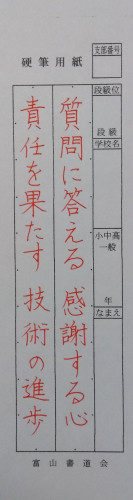 硬筆用紙
質問に答える 感謝する心
責任を果たす 技術の進歩
支部番号
段級位
段級
学校名
小中高一般
年
なまえ
富山書道会